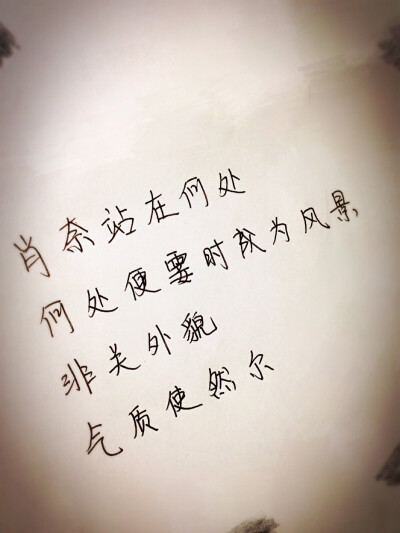 肖奈站在何处
何处便霎时成为风景
非关外貌
气质使然尔